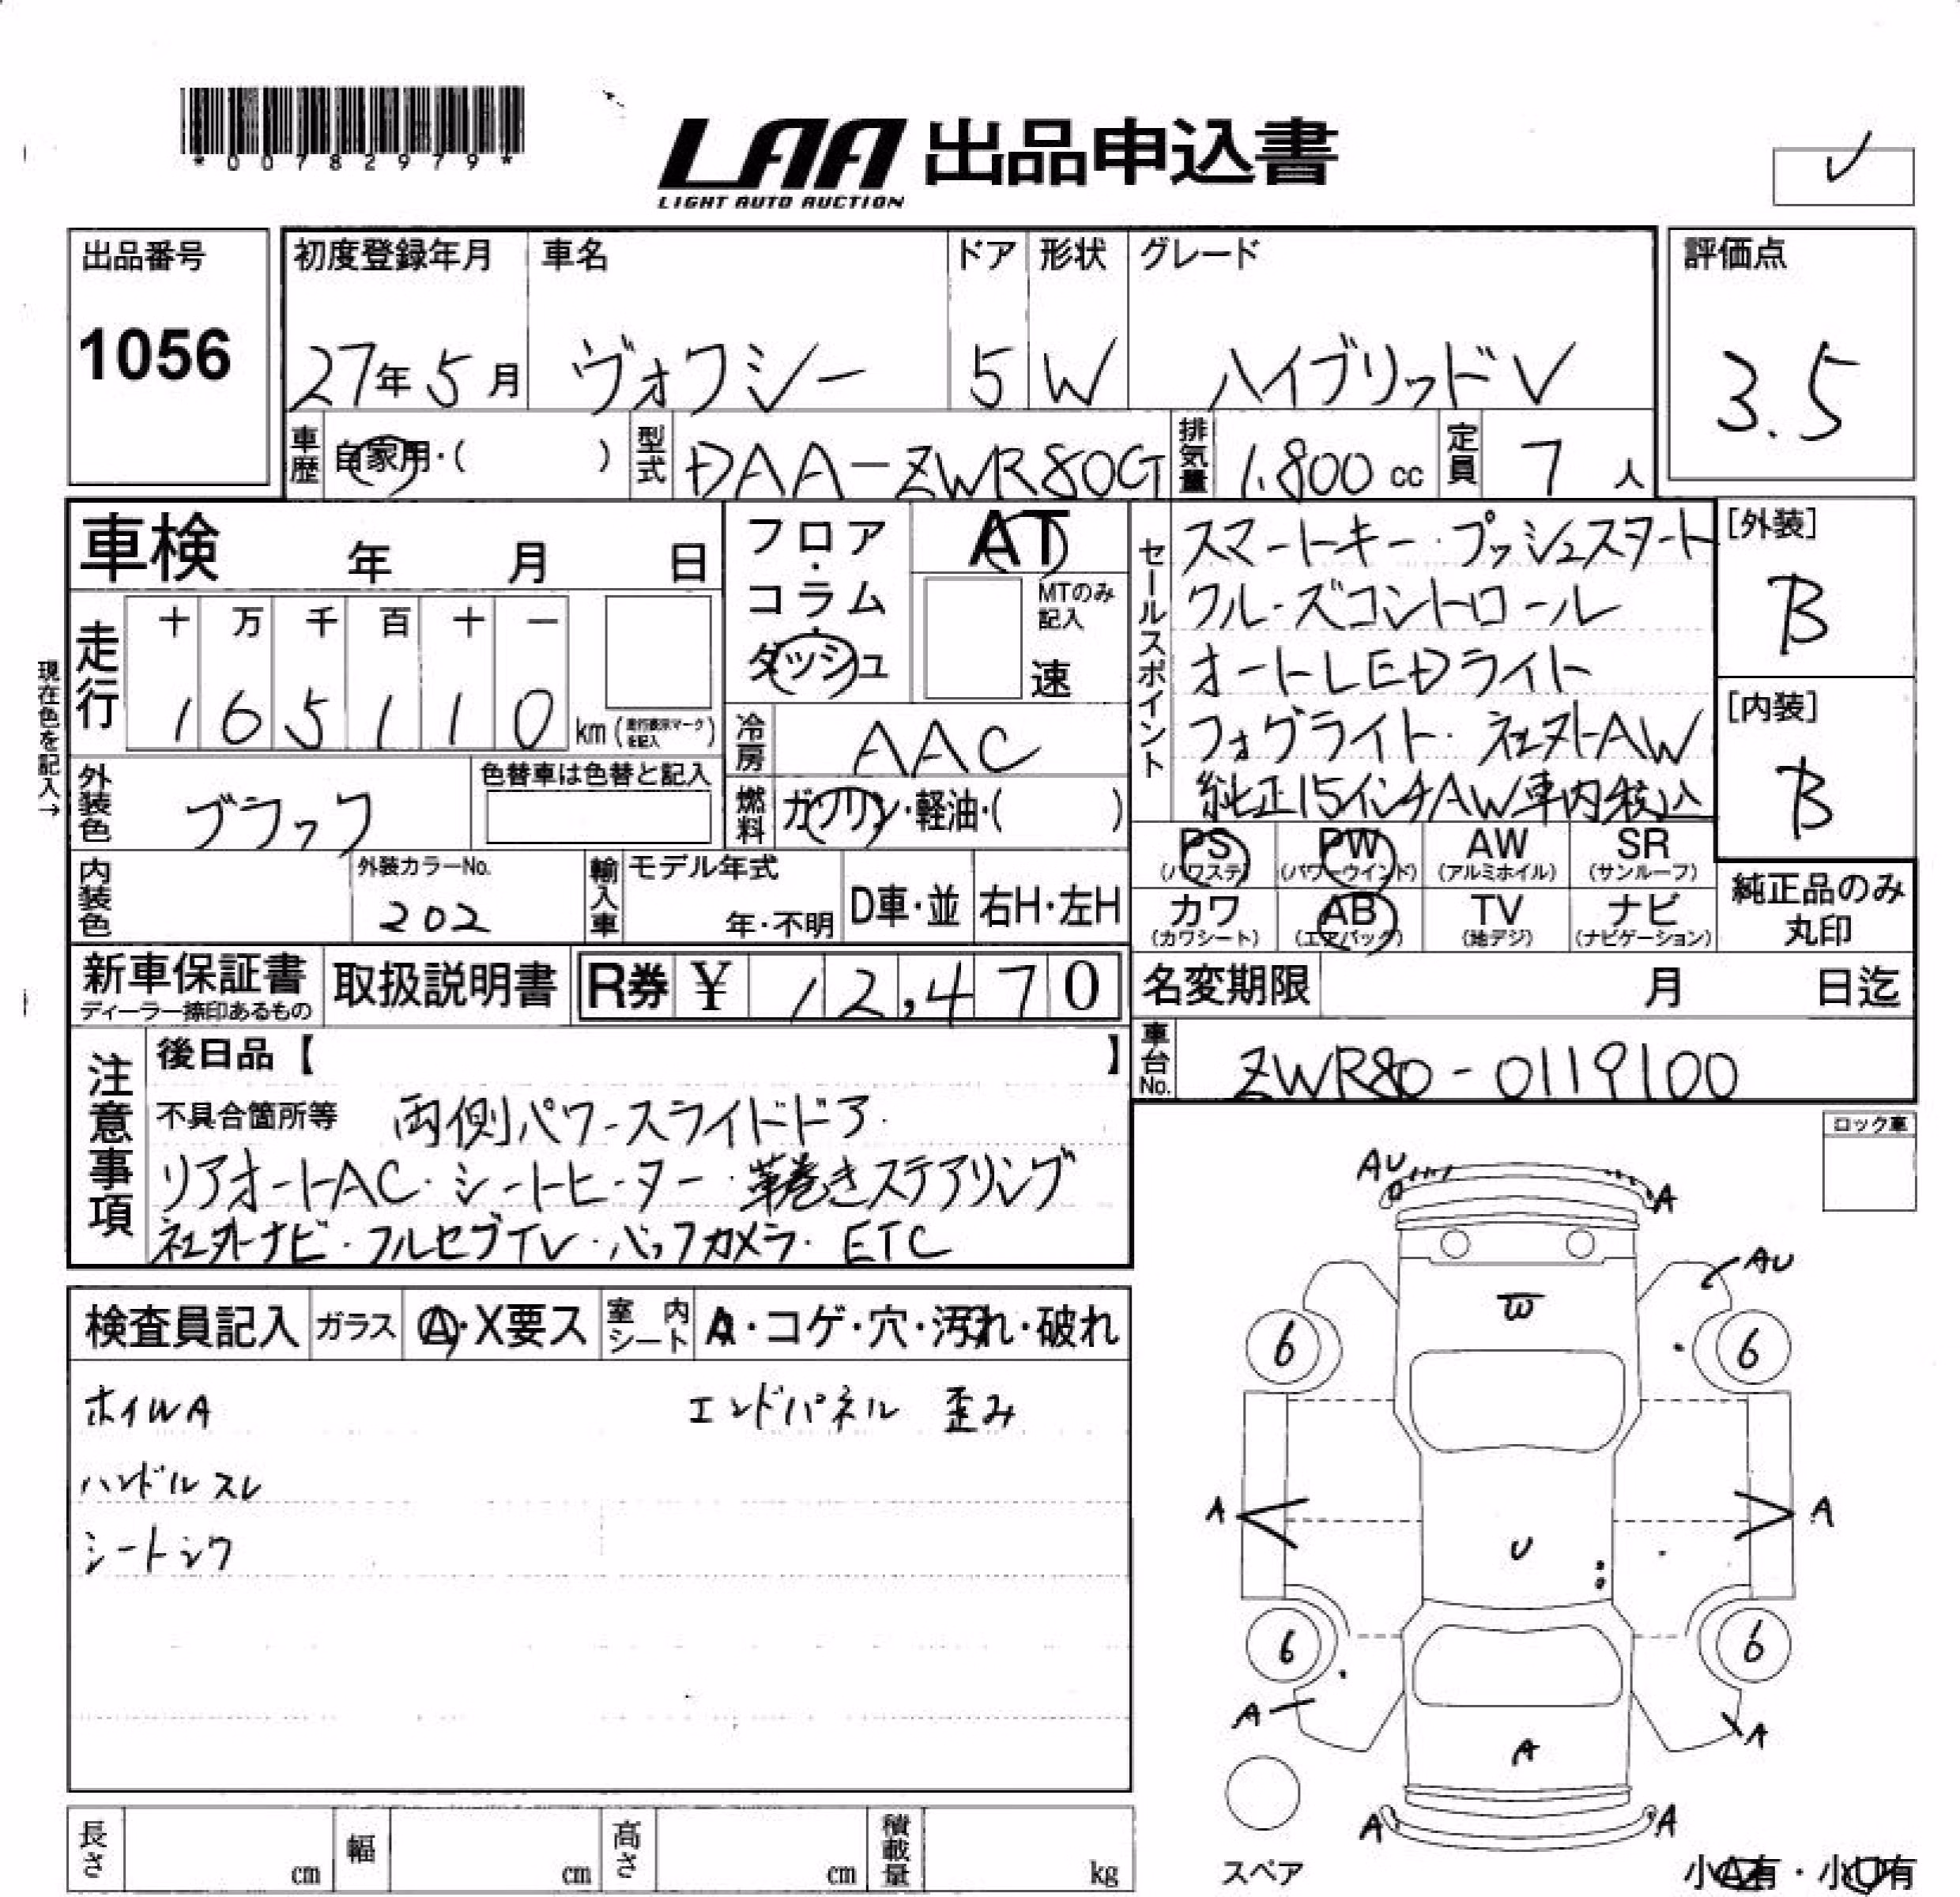 *00782979*
LAA 出品申込書
LIGHT AUTO AUCTION
出品番号
1056
初度登録年月
27年5月
車名
ヴォクシー
ドア
5
形状
W
グレード
ハイブリッドV
評価点
3.5
車歴
自家用・( )
型式
DAA-ZWR80G
排気量
1.800 cc
定員
7 人
車検 年 月 日
フロア・コラム・ダッシュ
AT
MTのみ記入
速
セールスポイント
スマートキー・プッシュスタート
クルーズコントロール
オートLEDライト
フォグライト・社外AW
純正15インチAW車内積込
[外装]
B
[内装]
B
現在色を記入→
走行
十 万 千 百 十 一
1 6 5 1 1 0 km (走行表示マークを記入)
冷房
AAC
外装色
ブラック
色替車は色替と記入
燃料
ガソリン・軽油・( )
PS (パワステ)
PW (パワーウインド)
AW (アルミホイル)
SR (サンルーフ)
カワ (カワシート)
AB (エアバッグ)
TV (地デジ)
ナビ (ナビゲーション)
純正品のみ丸印
内装色
外装カラーNo.
202
輸入車
モデル年式
年・不明
D車・並
右H・左H
新車保証書
ディーラー捺印あるもの
取扱説明書
R券 ¥ 12,470
名変期限 月 日迄
車台No.
ZWR80-0119100
注意事項
後日品【 】
不具合箇所等 両側パワースライドドア・
リアオートAC・シートヒーター・革巻きステアリング
社外ナビ・フルセグTV・バックカメラ・ETC
ロック車
検査員記入
ガラス
A・X要ス
室内シート
A・コゲ・穴・汚れ・破れ
ホイルA
エンドパネル 歪み
ハンドルスレ
シートシワ
AU
A
AU
W
6
6
A
A
U
6
6
A
A
A
A
A
スペア
小A有・小U有
長さ cm
幅 cm
高さ cm
積載量 kg